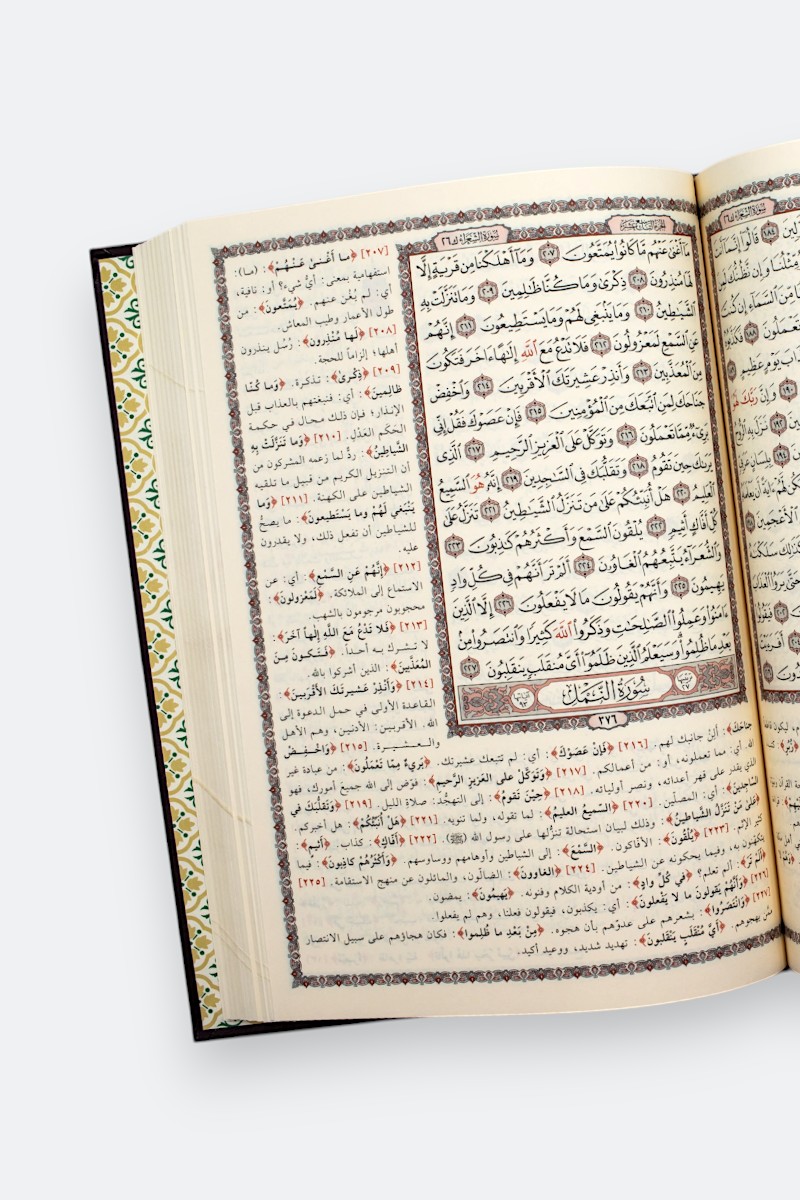 سُورَةُ الشُّعَرَاءِ ٢٦
الجزء التاسع عشر
سُورَةُ الشُّعَرَاءِ ٢٦
مَآ أَغْنَىٰ عَنْهُم مَّا كَانُوا۟ يُمَتَّعُونَ ٢٠٧ وَمَآ أَهْلَكْنَا مِن قَرْيَةٍ إِلَّا
لَهَا مُنذِرُونَ ٢٠٨ ذِكْرَىٰ وَمَا كُنَّا ظَـٰلِمِينَ ٢٠٩ وَمَا تَنَزَّلَتْ بِهِ
ٱلشَّيَـٰطِينُ ٢١٠ وَمَا يَنۢبَغِى لَهُمْ وَمَا يَسْتَطِيعُونَ ٢١١ إِنَّهُمْ
عَنِ ٱلسَّمْعِ لَمَعْزُولُونَ ٢١٢ فَلَا تَدْعُ مَعَ ٱللَّهِ إِلَـٰهًا ءَاخَرَ فَتَكُونَ
مِنَ ٱلْمُعَذَّبِينَ ٢١٣ وَأَنذِرْ عَشِيرَتَكَ ٱلْأَقْرَبِينَ ٢١٤ وَٱخْفِضْ
جَنَاحَكَ لِمَنِ ٱتَّبَعَكَ مِنَ ٱلْمُؤْمِنِينَ ٢١٥ فَإِنْ عَصَوْكَ فَقُلْ إِنِّى
بَرِىٓءٌ مِّمَّا تَعْمَلُونَ ٢١٦ وَتَوَكَّلْ عَلَى ٱلْعَزِيزِ ٱلرَّحِيمِ ٢١٧ ٱلَّذِى
يَرَىٰكَ حِينَ تَقُومُ ٢١٨ وَتَقَلُّبَكَ فِى ٱلسَّـٰجِدِينَ ٢١٩ إِنَّهُۥ هُوَ ٱلسَّمِيعُ
ٱلْعَلِيمُ ٢٢٠ هَلْ أُنَبِّئُكُمْ عَلَىٰ مَن تَنَزَّلُ ٱلشَّيَـٰطِينُ ٢٢١ تَنَزَّلُ عَلَىٰ
كُلِّ أَفَّاكٍ أَثِيمٍ ٢٢٢ يُلْقُونَ ٱلسَّمْعَ وَأَكْثَرُهُمْ كَـٰذِبُونَ ٢٢٣
وَٱلشُّعَرَآءُ يَتَّبِعُهُمُ ٱلْغَاوُۥنَ ٢٢٤ أَلَمْ تَرَ أَنَّهُمْ فِى كُلِّ وَادٍ
يَهِيمُونَ ٢٢٥ وَأَنَّهُمْ يَقُولُونَ مَا لَا يَفْعَلُونَ ٢٢٦ إِلَّا ٱلَّذِينَ
ءَامَنُوا۟ وَعَمِلُوا۟ ٱلصَّـٰلِحَـٰتِ وَذَكَرُوا۟ ٱللَّهَ كَثِيرًا وَٱنتَصَرُوا۟ مِنۢ
بَعْدِ مَا ظُلِمُوا۟ وَسَيَعْلَمُ ٱلَّذِينَ ظَلَمُوٓا۟ أَىَّ مُنقَلَبٍ يَنقَلِبُونَ ٢٢٧
سُورَةُ النَّمْلِ
٣٧٦
[٢٠٧] ﴿ما أَغْنىٰ عَنْهُمْ﴾: (ما):
استفهامية بمعنى: أيُّ شيء؟ أو: نافية،
أي: لم يُغْنِ عنهم. ﴿يُمَتَّعونَ﴾: من
طول الأعمار وطيب المعاش.
[٢٠٨] ﴿لَها مُنْذِرونَ﴾: رُسُل ينذرون
أهلها؛ إلزاماً للحجة.
[٢٠٩] ﴿ذِكْرىٰ﴾: تذكرة. ﴿وَما كُنَّا
ظالِمينَ﴾: أي: فنبغتهم بالعذاب قبل
الإنذار؛ فإن ذلك محال في حكمة
الحَكَم العَدْل. [٢١٠] ﴿وَما تَنَزَّلَتْ بِهِ
الشَّياطينُ﴾: ردٌّ لما زعمه المشركون من
أن التنزيل الكريم من قبيل ما تلقيه
الشياطين على الكهنة. [٢١١] ﴿وَما
يَنْبَغي لَهُمْ وَما يَسْتَطيعونَ﴾: ما يصحُّ
للشياطين أن تفعل ذلك، ولا يقدرون
عليه.
[٢١٢] ﴿إِنَّهُمْ عَنِ السَّمْعِ﴾: أي: عن
الاستماع إلى الملائكة. ﴿لَمَعْزولونَ﴾:
محجوبون مرجومون بالشهب.
[٢١٣] ﴿فَلا تَدْعُ مَعَ اللَّهِ إِلٰهاً آخَرَ﴾:
لا تشرك به أحداً. ﴿فَتَكونَ مِنَ
المُعَذَّبينَ﴾: الذين أشركوا بالله.
[٢١٤] ﴿وَأَنْذِرْ عَشيرَتَكَ الأَقْرَبينَ﴾:
القاعدة الأولى في حمل الدعوة إلى
الله. الأقربين: الأدنين، وهم الأهل
والعشيرة. [٢١٥] ﴿وَاخْفِضْ
جَناحَكَ﴾: ألِنْ جانبك لهم. [٢١٦] ﴿فَإِنْ عَصَوْكَ﴾: أي: لم تتبعك عشيرتك. ﴿بَريءٌ مِمَّا تَعْمَلونَ﴾: من عبادة غير
الله. أي: مما تعملونه، أو: من أعمالكم. [٢١٧] ﴿وَتَوَكَّلْ على العَزيزِ الرَّحيمِ﴾: فوّض إلى الله جميع أمورك، فهو
الذي يقدر على قهر أعدائه، ونصر أوليائه. [٢١٨] ﴿حينَ تَقومُ﴾: إلى التهجُّد: صلاةِ الليل. [٢١٩] ﴿وَتَقَلُّبَكَ في
السَّاجِدينَ﴾: أي: المصلّين. [٢٢٠] ﴿السَّميعُ العَليمُ﴾: لما تقوله، ولما تنويه. [٢٢١] ﴿هَلْ أُنَبِّئُكُمْ﴾: هل أخبركم.
﴿عَلىٰ مَنْ تَنَزَّلُ الشَّياطينُ﴾: وذلك لبيان استحالة تنزُّلها على رسول الله (ﷺ). [٢٢٢] ﴿أَفَّاكٍ﴾: كذاب. ﴿أَثيمٍ﴾:
كثير الإثم. [٢٢٣] ﴿يُلْقونَ﴾: الأفاكون. ﴿السَّمْعَ﴾: إلى الشياطين وأوهامهم ووساوسهم. ﴿وَأَكْثَرُهُمْ كاذِبونَ﴾: فيما
يتكهنون به، وفيما يحكونه عن الشياطين. [٢٢٤] ﴿الغاوونَ﴾: الضالّون، والمائلون عن منهج الاستقامة. [٢٢٥]
﴿أَلَمْ تَرَ﴾: ألم تعلم؟ ﴿في كُلِّ وادٍ﴾: من أودية الكلام وفنونه. ﴿يَهيمونَ﴾: يمضون.
[٢٢٦] ﴿وَأَنَّهُمْ يَقولونَ ما لا يَفْعَلونَ﴾: أي: يكذبون، فيقولون فعلنا، وهم لم يفعلوا.
[٢٢٧] ﴿وَانْتَصَروا﴾: بشعرهم على عدوّهم بأن هجوه. ﴿مِنْ بَعْدِ ما ظُلِموا﴾: فكان هجاؤهم على سبيل الانتصار
ممّن يهجوهم. ﴿أَيَّ مُنْقَلَبٍ يَنْقَلِبونَ﴾: تهديد شديد، ووعيد أكيد.